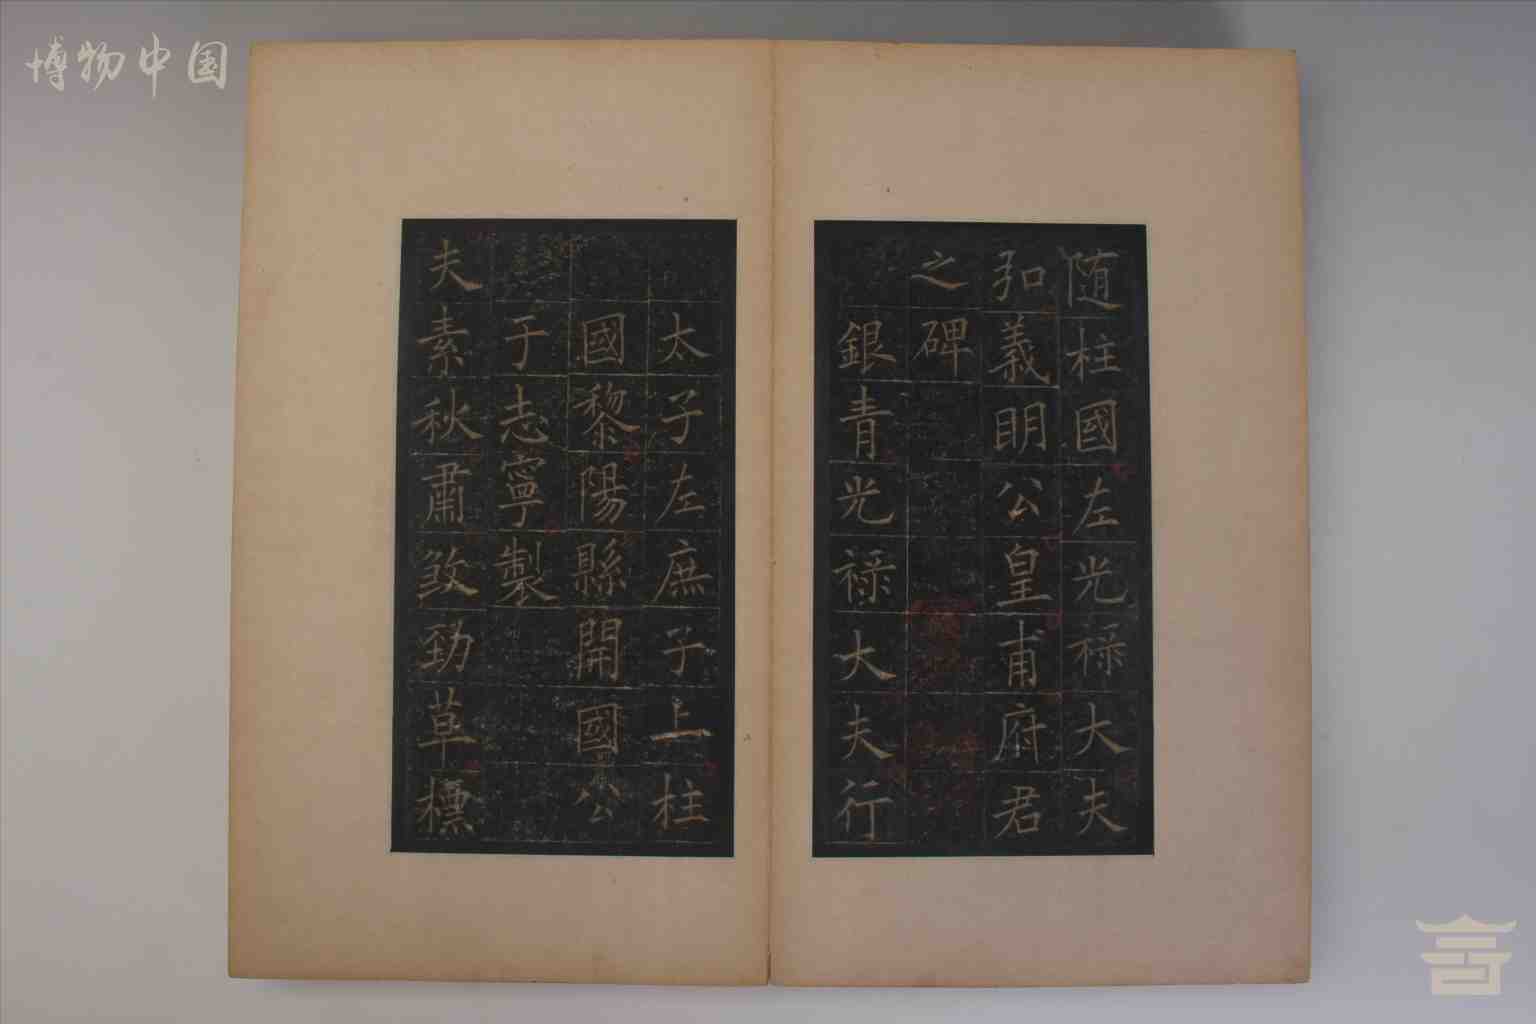 博物中国
随柱國左光祿大夫
弘義明公皇甫府君
之碑
銀青光祿大夫行
太子左庶子上柱
國黎陽縣開國公
于志寧製
夫素秋肅煞勁草標